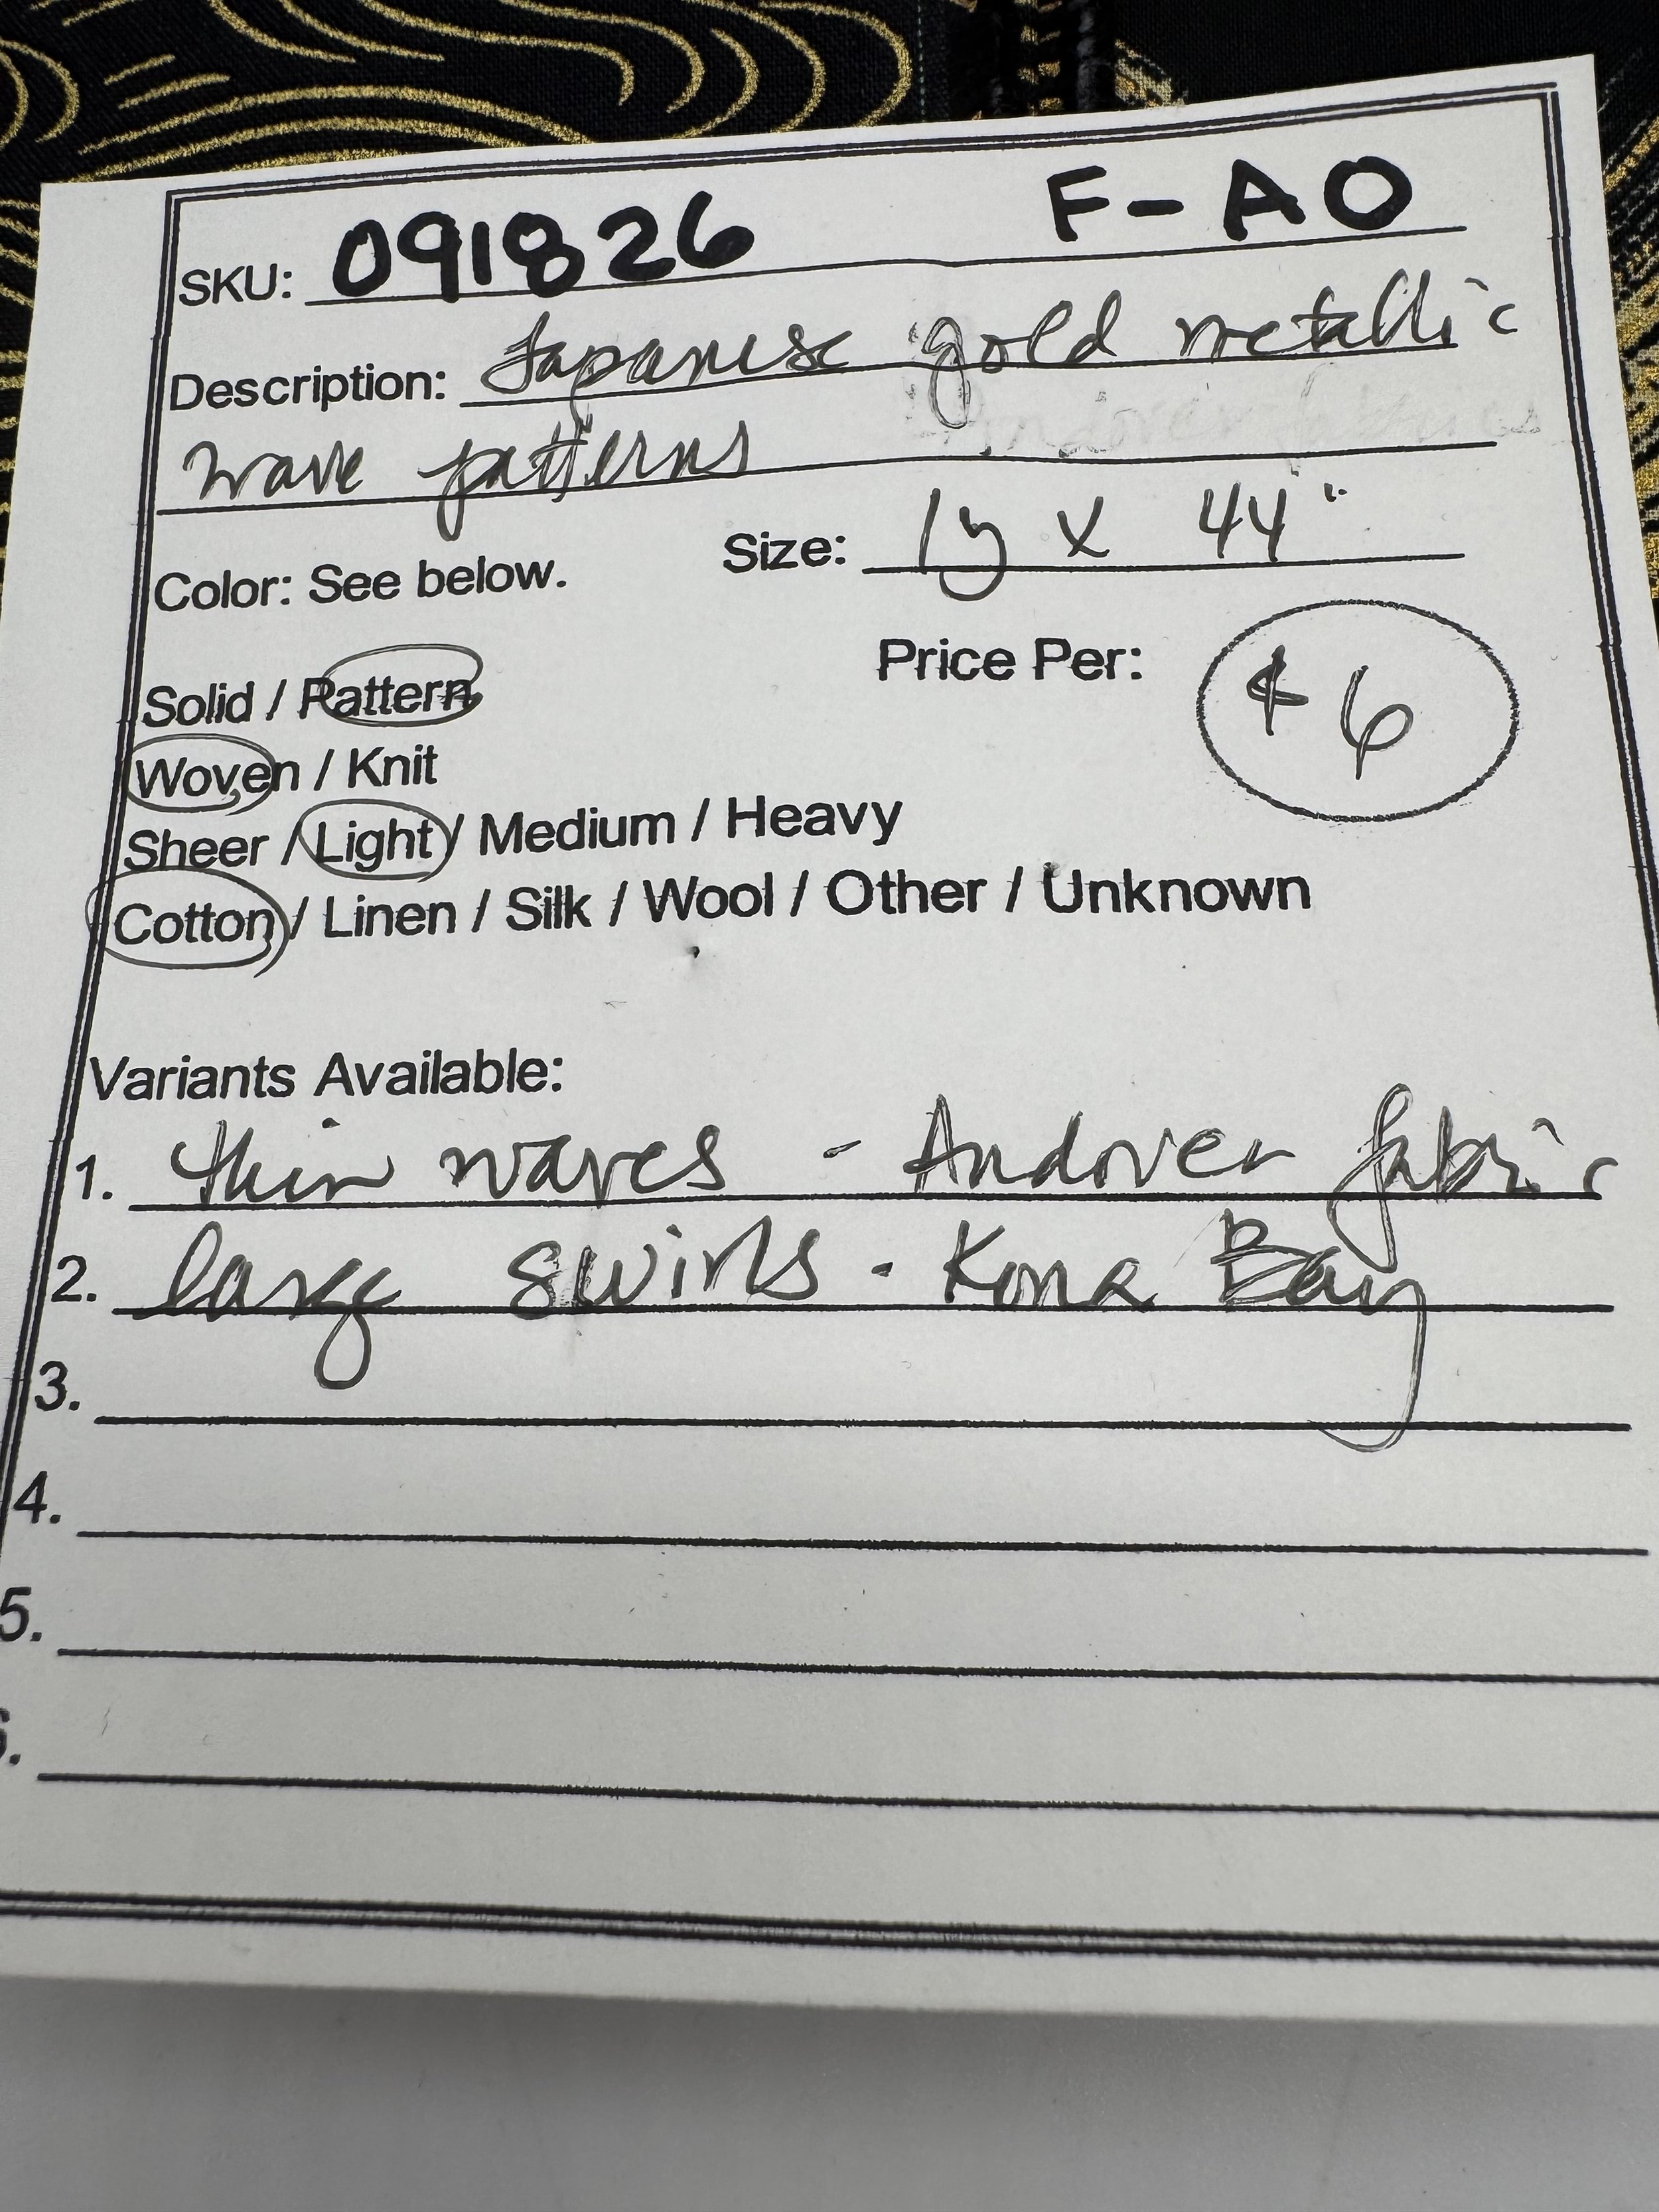 SKU: 091826 F-AO
Description: Japanese gold metallic
wave patterns
Color: See below. Size: 1y x 44"
Price Per: $6
Solid / Pattern
Woven / Knit
Sheer / Light / Medium / Heavy
Cotton / Linen / Silk / Wool / Other / Unknown
Variants Available:
1. thin waves - Andover fabric
2. large swirls - Kona Bay
3.
4.
5.